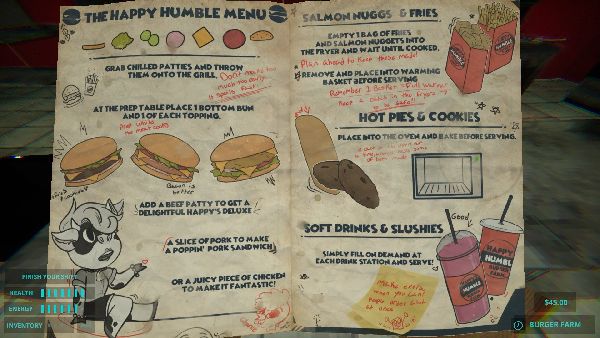 THE HAPPY HUMBLE MENU
GRAB CHILLED PATTIES AND THROW
THEM ONTO THE GRILL.
Don't make too
much too early
it spoils fast!
AT THE PREP TABLE PLACE 1 BOTTOM BUN
AND 1 OF EACH TOPPING.
Prep while
the meat cooks
Bacon is
better
ADD A BEEF PATTY TO GET A
DELIGHTFUL HAPPY'S DELUXE
A SLICE OF PORK TO MAKE
A POPPIN' PORK SANDWICH
OR A JUICY PIECE OF CHICKEN
TO MAKE IT FANTASTIC!
FINISH YOUR SHIFT
HEALTH:
ENERGY:
INVENTORY
SALMON NUGGS & FRIES
EMPTY 1 BAG OF FRIES
AND SALMON NUGGETS INTO
THE FRYER AND WAIT UNTIL COOKED.
Plan ahead to keep these made!
REMOVE AND PLACE INTO WARMING
BASKET BEFORE SERVING
Remember 1 Basket = Full warmer
Keep a batch in the fryers
to be safe!!
HOT PIES & COOKIES
PLACE INTO THE OVEN AND BAKE BEFORE SERVING.
SOFT DRINKS & SLUSHIES
SIMPLY FILL ON DEMAND AT
EACH DRINK STATION AND SERVE!
Good
HAPPY
HUMBLE
BURGER
FARM
HUMBLE
Make extra
when you can!
People order a lot
at once
$45.00
BURGER FARM